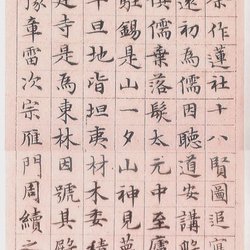 作蓮社十八賢圖追寫
遠初為儒因聽道安講
儒棄落髮太元中至廬
駐錫是山一夕山神見夢
旦地皆坦夷材木委積
是寺是為東林因號其殿
豫章雷次宗雁門周續之